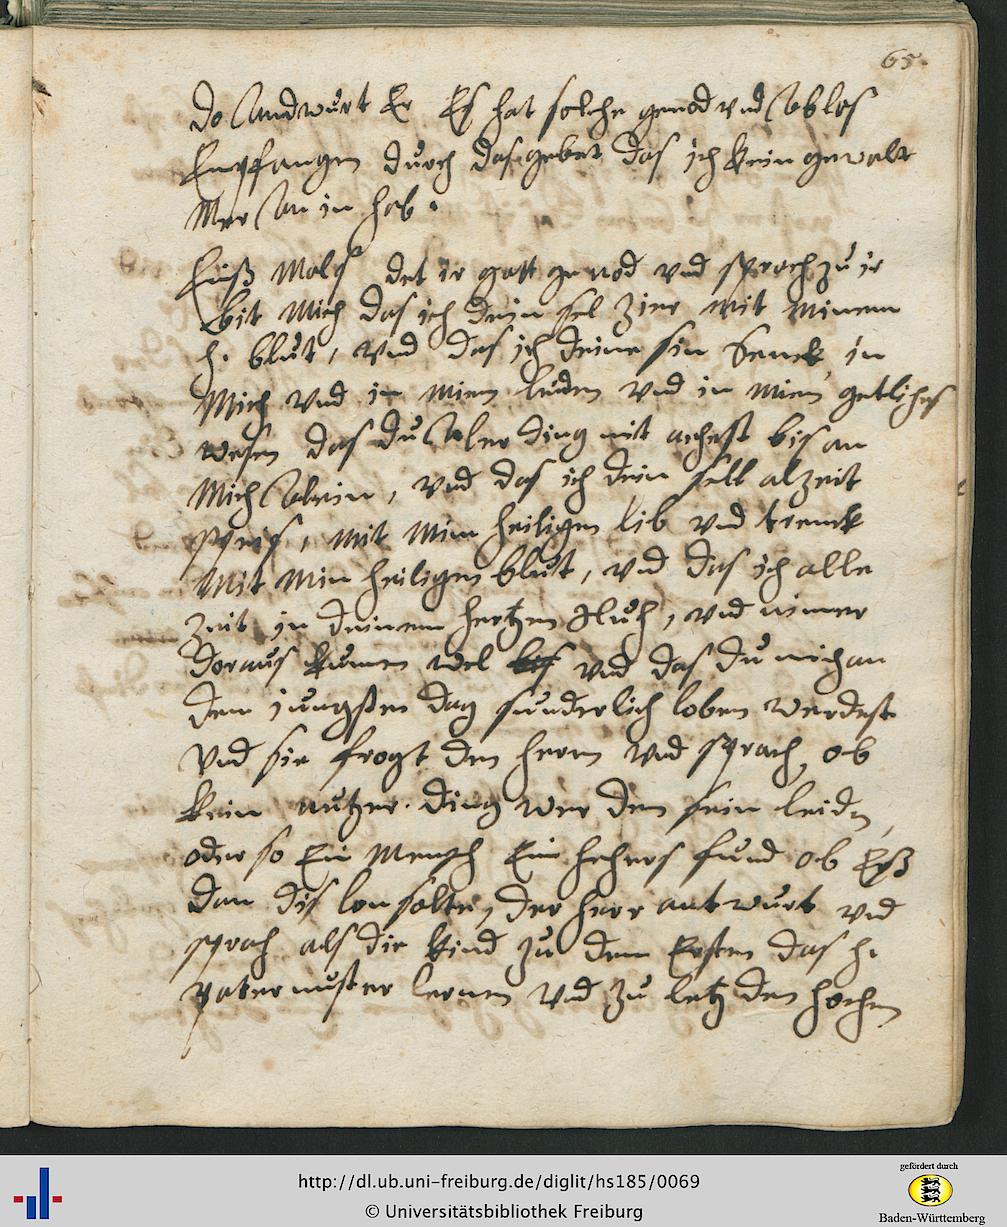 65.
do andwurt Er Es hat solche genod vnd ablos
Empfangen durch das gebet das ich kein gewalt
Mer an in hab.
Einß Mols det ir gott genod vnd sprach zu ir
bit Mich das ich dein sel zier mit minem
h. blut, vnd das ich deine sin senck in
Mich vnd in mien liden vnd in mien getliches
wesen das du aler ding nit achest bis an
Mich alein, vnd das ich dein sell alzeit
speis, mit min heiligen lib vnd trenck
Mit min heiligen blut, vnd das ich alle
zeit in deinem hertzen vnd nimer
doraus kumen wel vnd das du mich an
dem jungsten dag sunderlich loben werdest
Vnd sie frogt den heren vnd sprach, ob
kein nutzer ding wer den sein leiden,
oder so Ein Mensch Ein hehers fund ob Eß
dan dis lon solte, der herr antwurt vnd
sprach als die kind zu dem Ersten das h.
pater nuster lernen vnd zu letz den hochen
http://dl.ub.uni-freiburg.de/diglit/hs185/0069
© Universitätsbibliothek Freiburg
gefördert durch
Baden-Württemberg